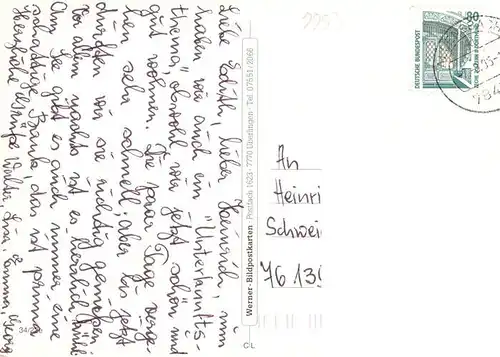 Liebe Edith, lieber Heinrich, nun
haben wir auch ein "Unterkunfts-
thema", obwohl wir jetzt schön und
gut wohnen. Die paar Tage verge-
hen sehr schnell, aber bis jetzt
durften wir sie richtig genießen.
Vor allem nachts ist es herrlich kühl.
Ang. Se gibt es auch immer eine
schattige Bank, das ist prima
Herzliche Grüße Walter, Lisa, Emma, Georg
Werner-Bildpostkarten · Postfach 1623 · 7770 Überlingen · Tel. 07551/2066
CL
34/
An
Heinri
Schwei
76 135
80
DEUTSCHE BUNDESPOST